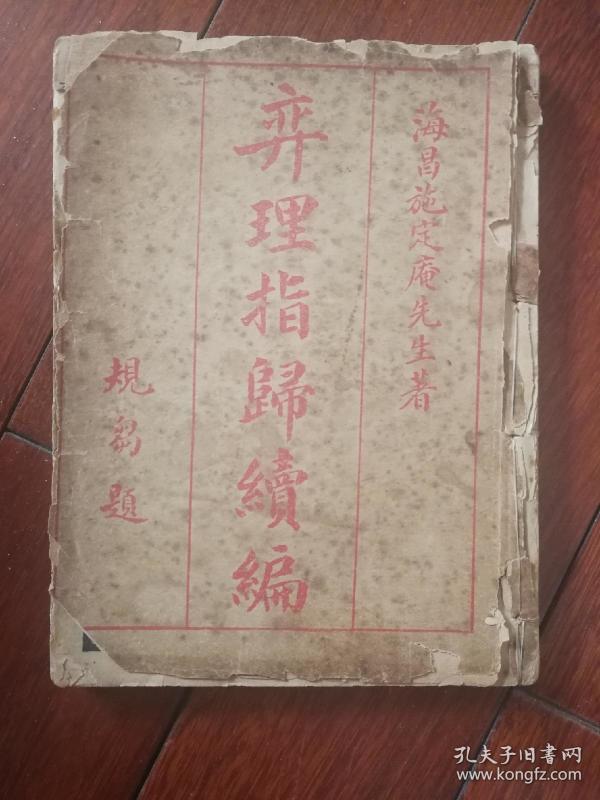 海昌施定庵先生著
弈理指歸續編
規芻題
孔夫子旧书网
www.kongfz.com